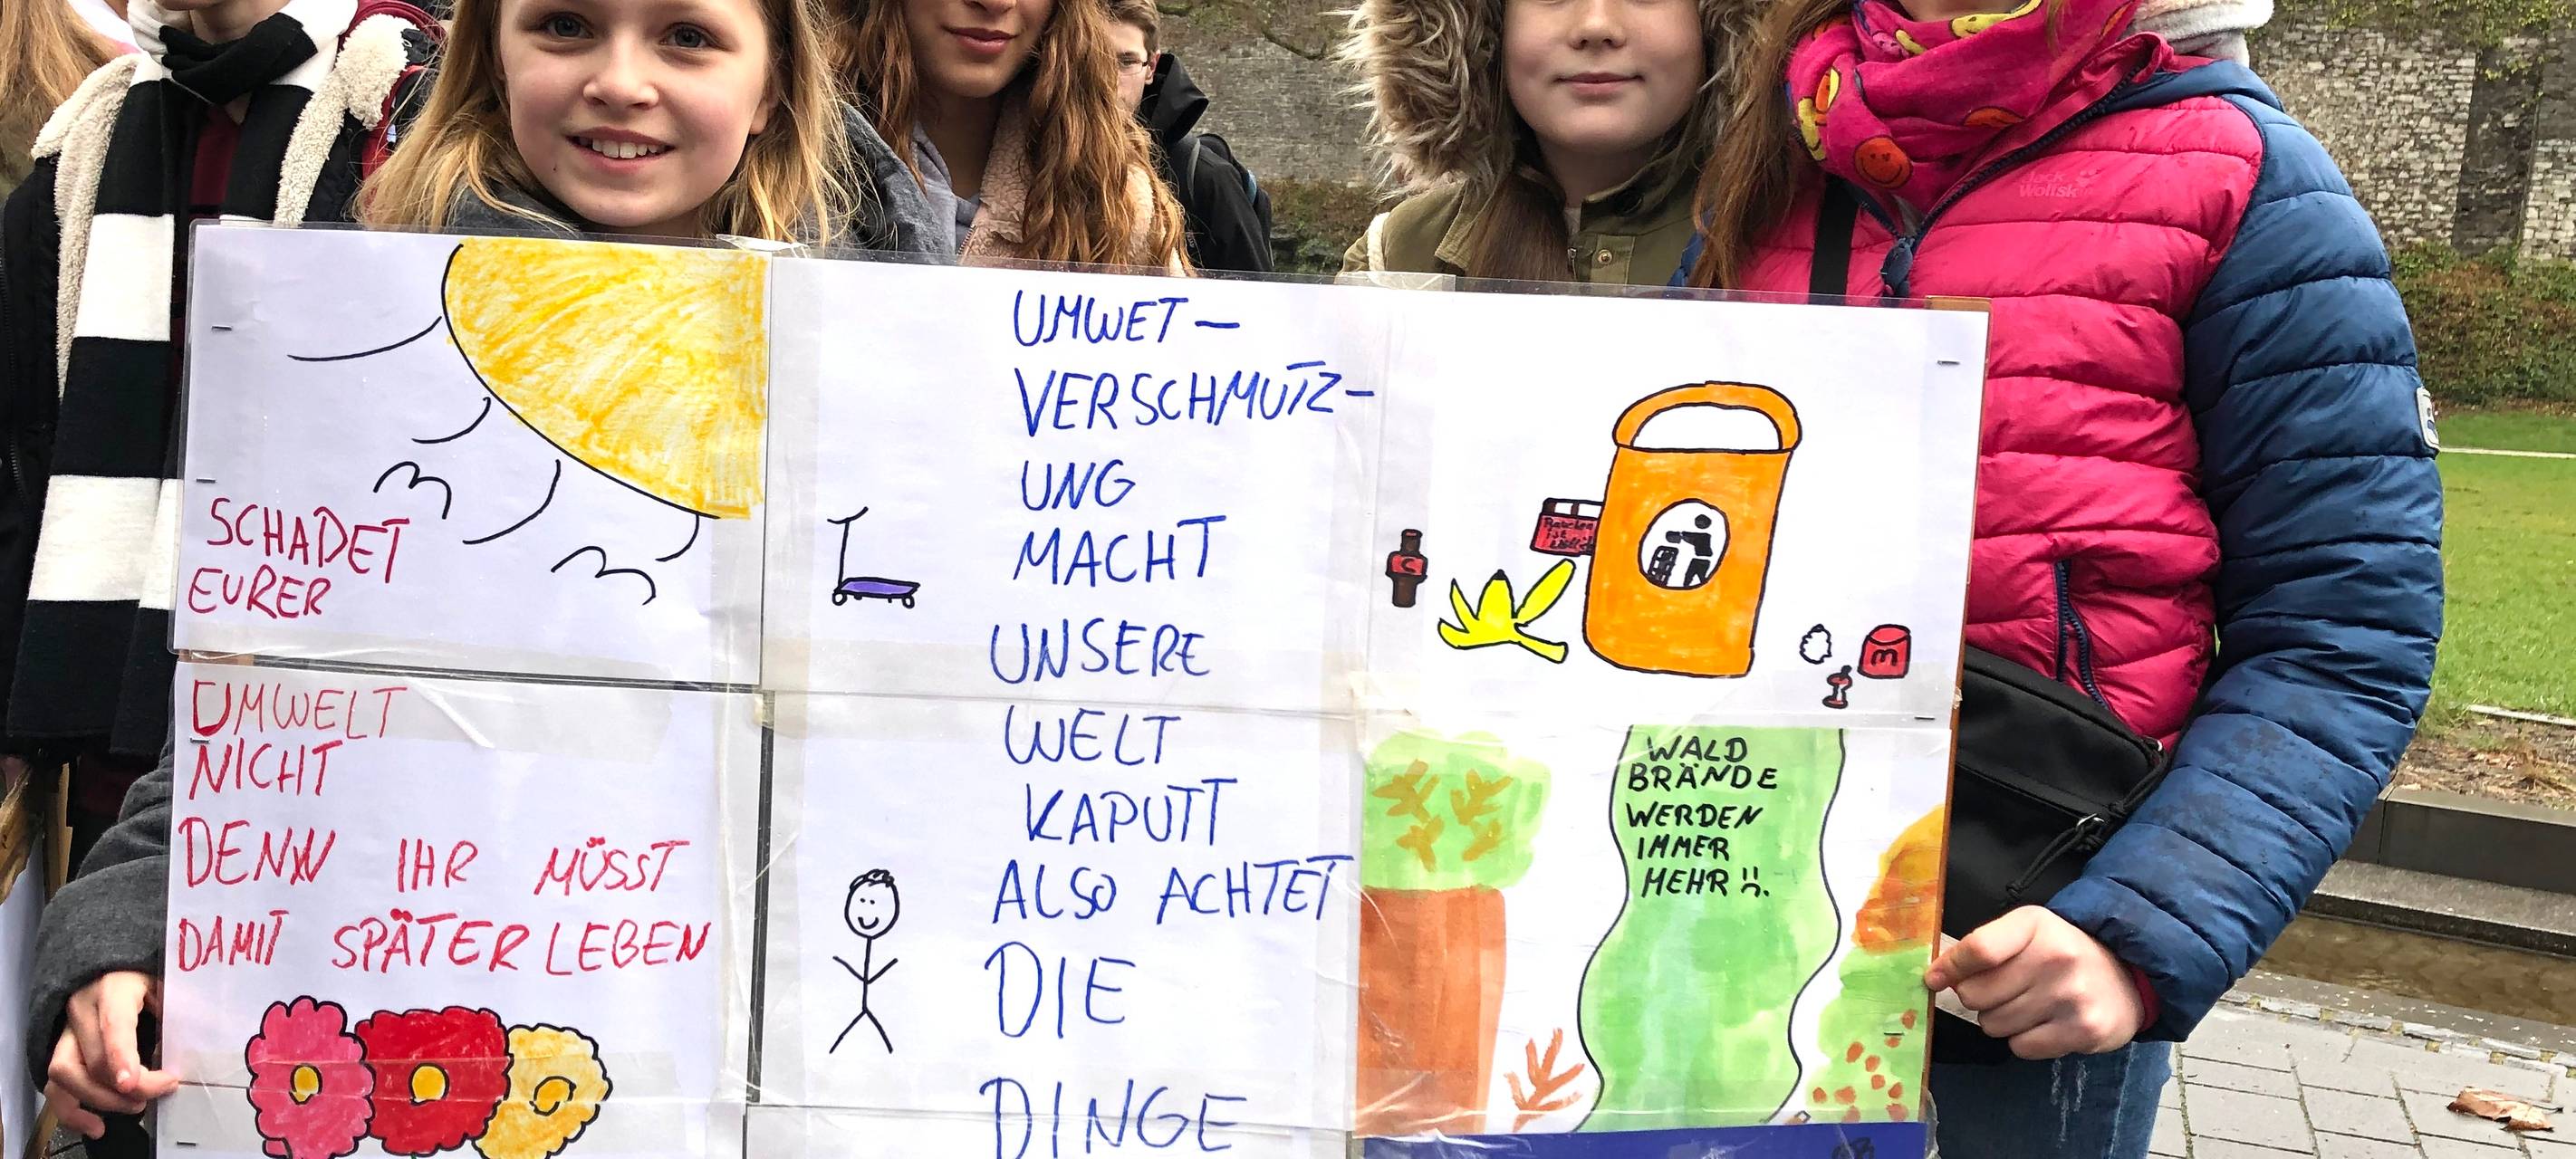 SCHADET
EURER
UMWELT
NICHT
DENN IHR MÜSST
DAMIT SPÄTER LEBEN
UMWET-
VERSCHMUTZ-
UNG
MACHT
UNSERE
WELT
KAPUTT
ALSO ACHTET
DIE
DINGE
Rauchen
ist
C
m
WALD
BRÄNDE
WERDEN
IMMER
MEHR
Jack
Wolfskin